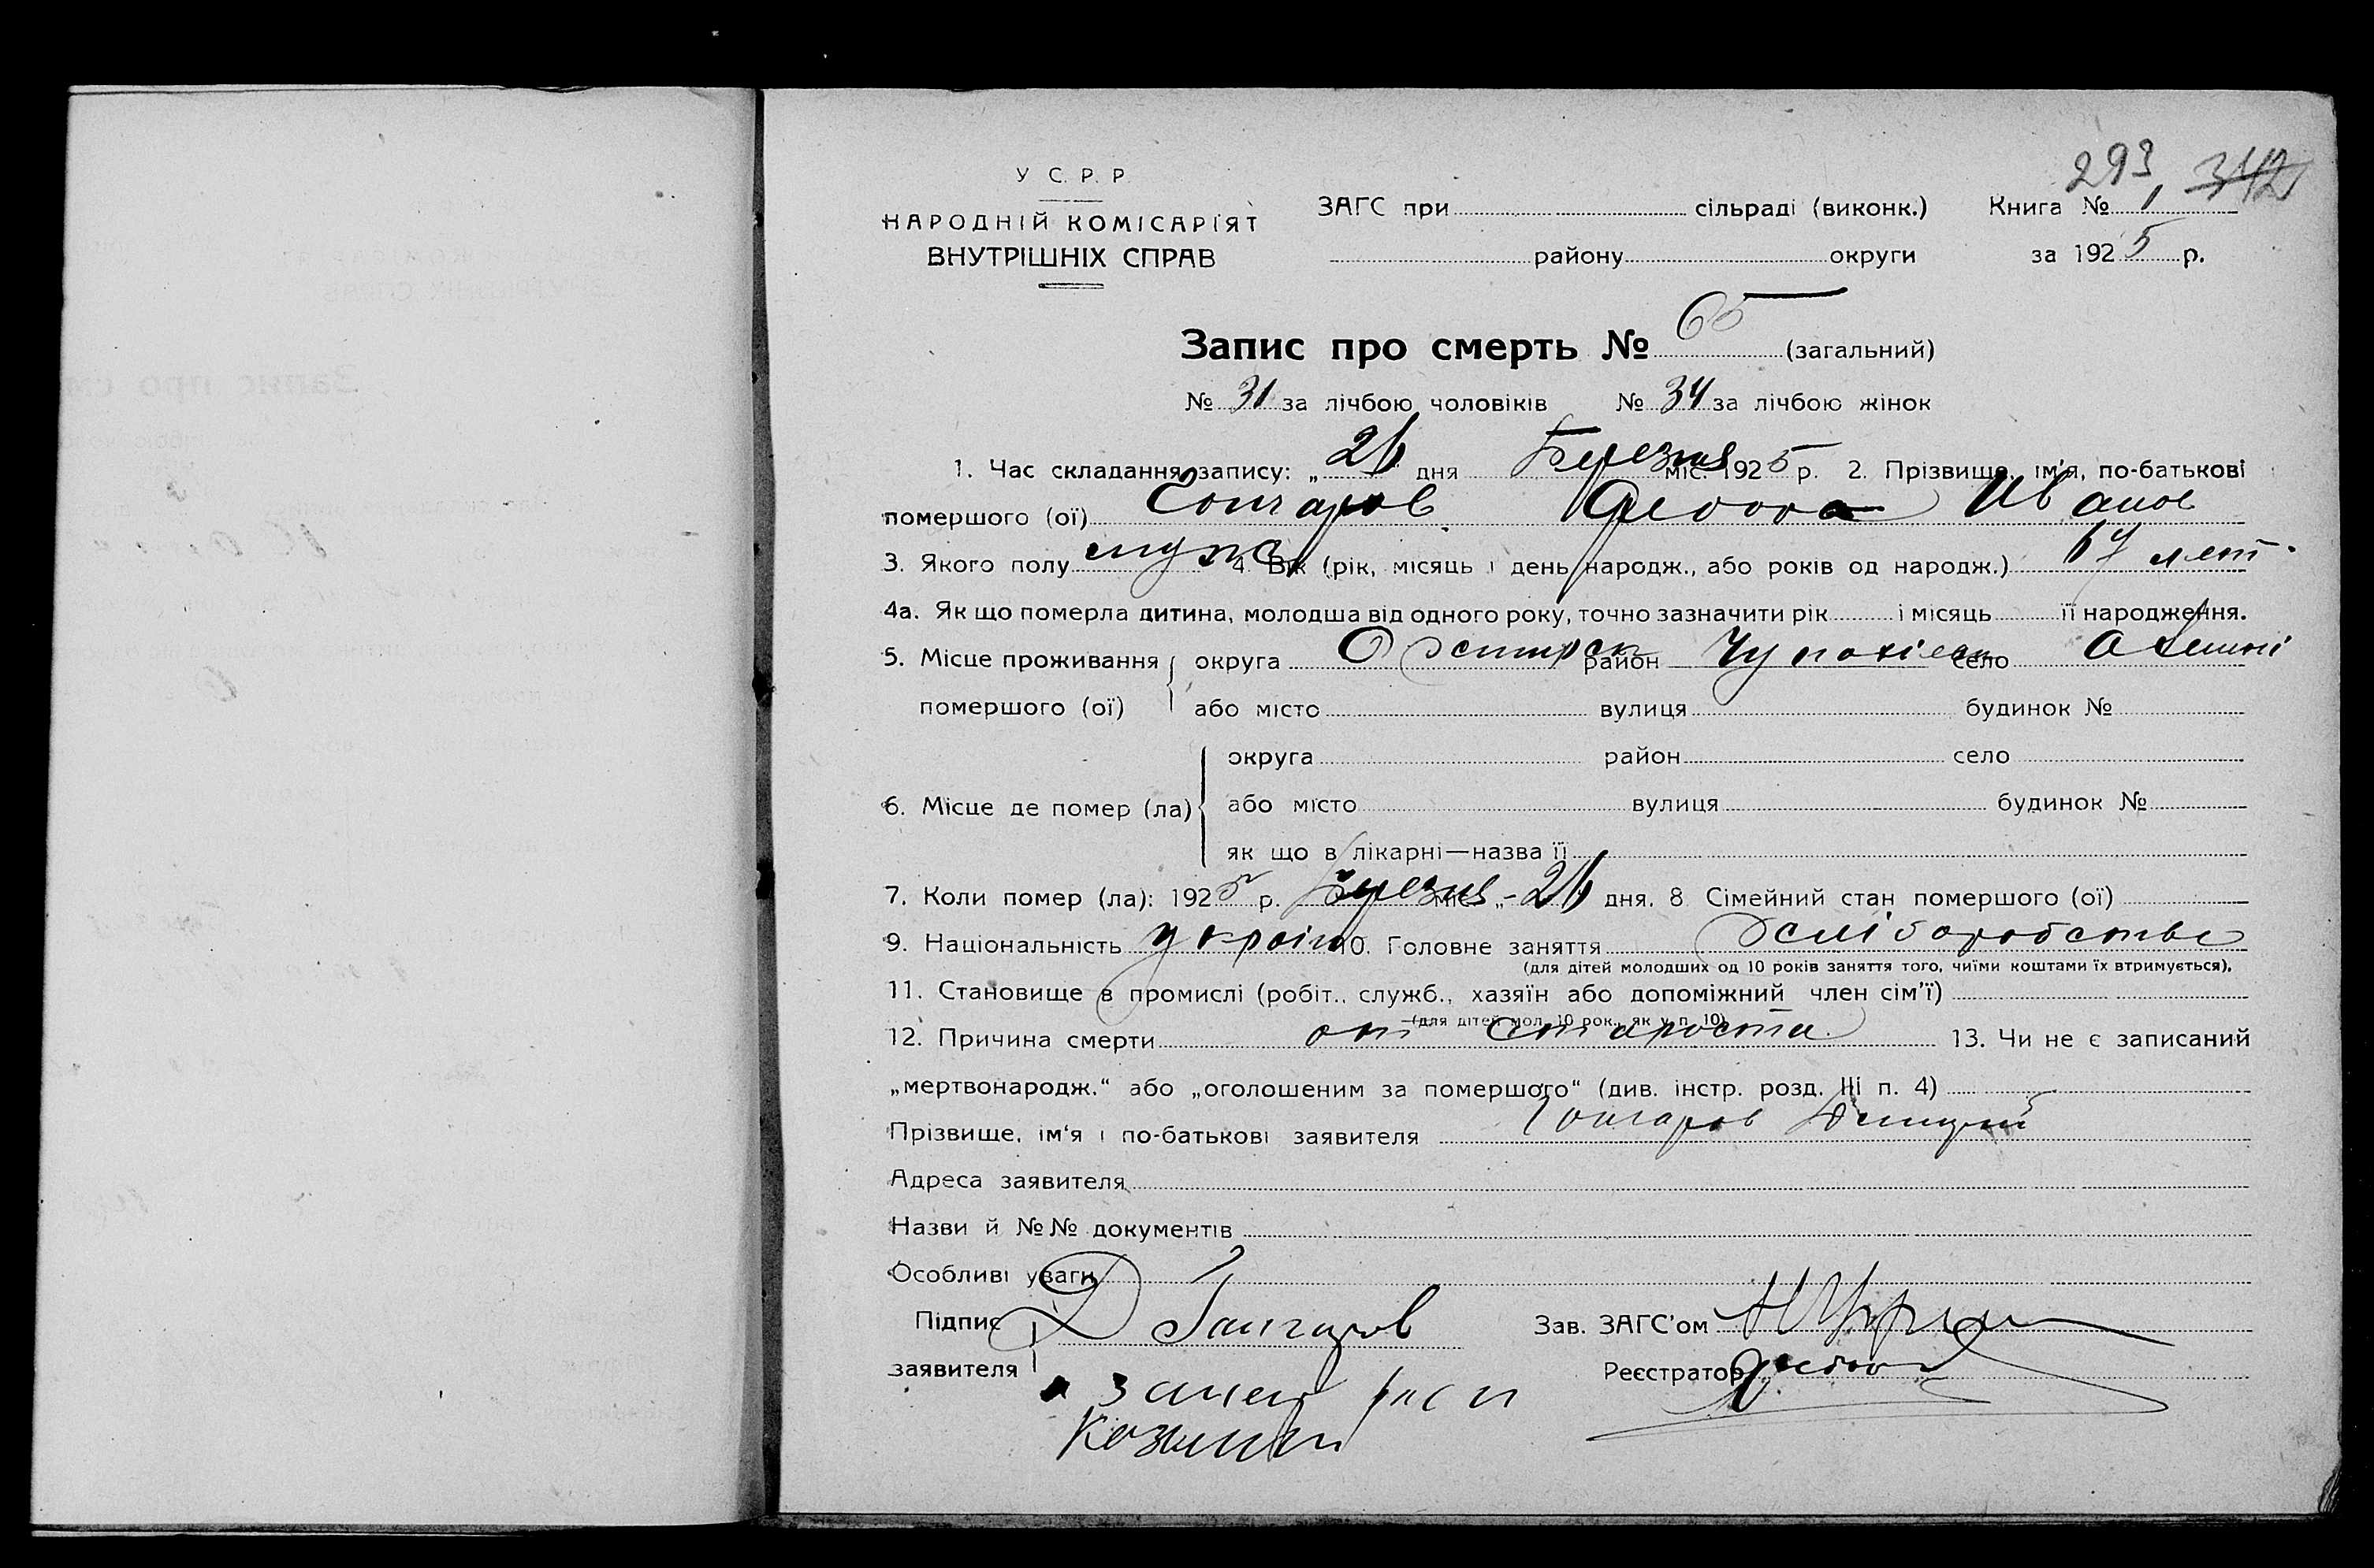 293 342
У С. Р. Р.
НАРОДНІЙ КОМІСАРІЯТ
ВНУТРІШНІХ СПРАВ
ЗАГС при сільраді (виконк.) Книга № 1
району округи за 1925 р.
Запис про смерть № 65 (загальний)
№ 31 за лічбою чоловіків № 34 за лічбою жінок
1. Час складання запису: „26 дня Березня міс. 1925 р. 2. Прізвище, ім'я, по-батькові
помершого (ої) Гончаров Иванов
3. Якого полу муж 4. Вік (рік, місяць і день народж., або років од народж.) 67 лет
4а. Як що померла дитина, молодша від одного року, точно зазначити рік і місяць її народження.
5. Місце проживання округа район село
помершого (ої) або місто вулиця будинок №
округа район село
6. Місце де помер (ла) або місто вулиця будинок №
як що в лікарні—назва її
7. Коли помер (ла): 1925 р. Березня міс. „-26 дня. 8 Сімейний стан помершого (ої)
9. Національність україн 10. Головне заняття
(для дітей молодших од 10 років заняття того, чиїми коштами їх втримується).
11. Становище в промислі (робіт., служб., хазяїн або допоміжний член сім'ї)
(для дітей мол. 10 рок., як у п. 10)
12. Причина смерти от старости 13. Чи не є записаний
„мертвонародж.“ або „оголошеним за помершого“ (див. інстр. розд. III п. 4)
Прізвище, ім'я і по-батькові заявителя Гончаров
Адреса заявителя
Назви й №№ документів
Особливі уваги
Підпис Д Гончаров Зав. ЗАГС'ом
заявителя Реєстратор